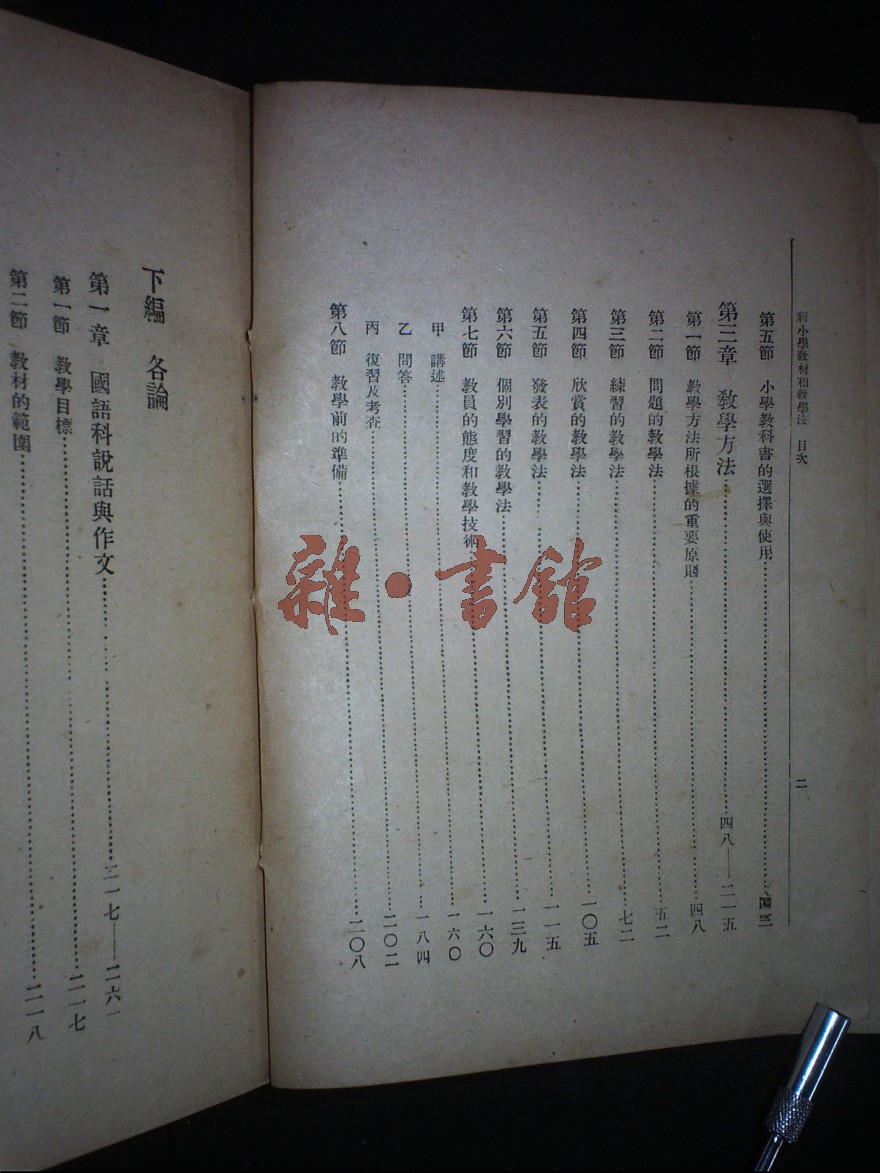 新小學教材和教學法 目次
二
第五節 小學教科書的選擇與使用
第三章 教學方法 四八——二一五
第一節 教學方法所根據的重要原則 四八
第二節 問題的教學法 五二
第三節 練習的教學法 七二
第四節 欣賞的教學法 一〇五
第五節 發表的教學法 一一五
第六節 個別學習的教學法 一三九
第七節 教員的態度和教學技術 一六〇
甲 講述 一六〇
乙 問答 一八四
丙 復習及考查 二〇二
第八節 教學前的準備 二〇八
下編 各論
第一章 國語科說話與作文 二一七——二六一
第一節 教學目標 二一七
第二節 教材的範圍 二一八
雜·書館